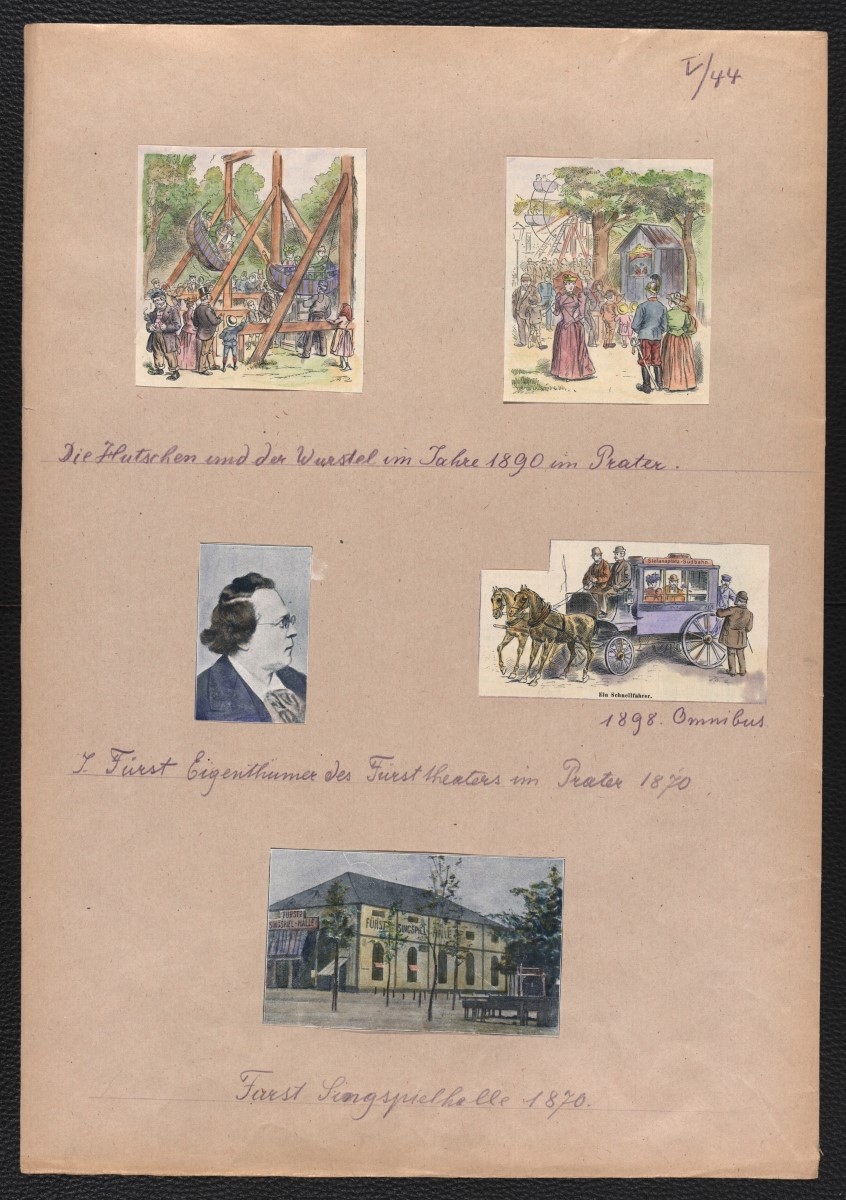 V/44
Die Hutschen und der Wurstel im Jahre 1890 im Prater.
Stefansplatz-Südbahn.
Ein Schnellfahrer.
1898. Omnibus.
J. Fürst Eigenthümer des Fürsttheaters im Prater 1870.
FÜRST
SINGSPIEL-HALLE
FÜRST SINGSPIEL-HALLE
Fürst Singspielhalle 1870.